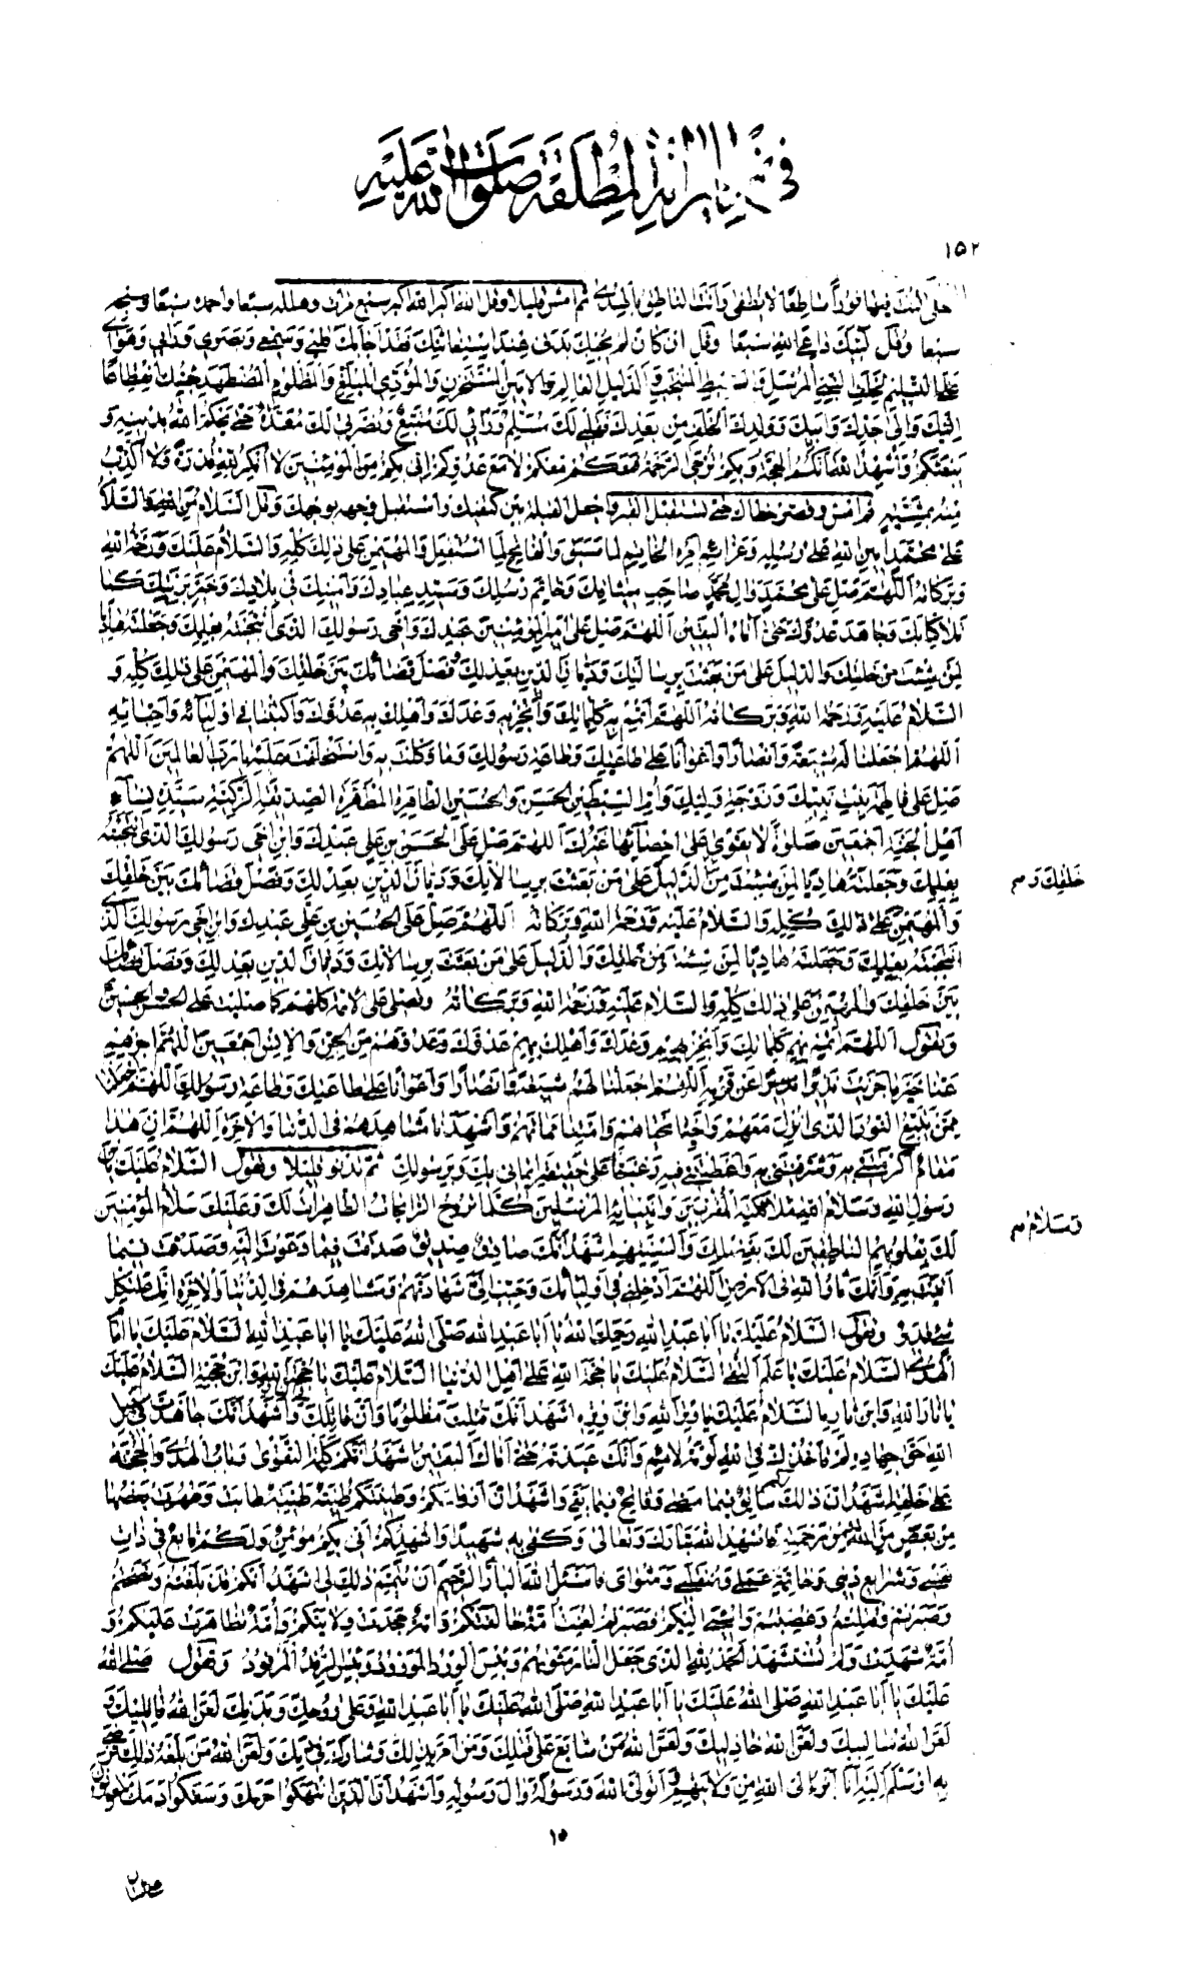 في زياراته المطلقة صلوات الله عليه
١٥٢
ثم امش قليلا وقل الله اكبر الله اكبر سبع مرات وهلله سبعا واحمده سبعا وسبحه
سبعا وقل لبيك داعي الله سبعا وقل ان كان لم يجبك بدني عند استغاثتك فقد اجابك قلبي وسمعي وبصري ورأيي وهواي
على التسليم لخلف النبي المرسل والسبط المنتجب والدليل العالم والامين المستخزن والمؤدي المبلغ والمظلوم المضطهد جئتك انقطاعا
اليك والى جدك وابيك وولدك الخلف من بعدك فقلبي لك مسلم ورأيي لك متبع ونصرتي لك معدة حتى يحكم الله بدينه و
يبعثكم واشهد الله انكم الحجة وبكم ترجى الرحمة فمعكم معكم لا مع عدوكم اني بكم من المؤمنين لا انكر لله قدرة ولا اكذب
منه بمشية ثم امش وقصر خطاك حتى تستقبل القبر واجعل القبلة بين كتفيك واستقبل وجهه بوجهك وقل السلام من الله والسلام
على محمد امين الله على رسله وعزائم امره الخاتم لما سبق والفاتح لما استقبل والمهيمن على ذلك كله والسلام عليك ورحمة الله
وبركاته اللهم صل على محمد وال محمد صاحب ميثاقك وخاتم رسلك وسيد عبادك وامينك في بلادك وخير بريتك كما
تلا كتابك وجاهد عدوك حتى اتاه اليقين اللهم صل على امير المؤمنين عبدك واخي رسولك الذي انتجبته بعلمك وجعلته هاديا
لمن شئت من خلقك والدليل على من بعثت برسالاتك وديان الدين بعدلك وفصل قضائك بين خلقك والمهيمن على ذلك كله و
السلام عليه ورحمة الله وبركاته اللهم اتمم به كلماتك وانجز به وعدك واهلك به عدوك واكتبنا في اوليائه واحبائه
اللهم اجعلنا له شيعة وانصارا واعوانا على طاعتك وطاعة رسولك وما وكلت به واستخلفته عليه يا رب العالمين اللهم
صل على فاطمة بنت نبيك وزوجة وليك وام السبطين الحسن والحسين الطاهرة المطهرة الصديقة الزكية سيدة نساء
اهل الجنة اجمعين صلوة لا يقوى على احصائها غيرك اللهم صل على الحسن بن علي عبدك وابن اخي رسولك الذي انتجبته
بعلمك وجعلته هاديا لمن شئت من الدليل على من بعثت برسالاتك وديان الدين بعدلك وفصل قضائك بين خلقك
خلقك و م
والمهيمن على ذلك كله والسلام عليه ورحمة الله وبركاته اللهم صل على الحسين بن علي عبدك وابن اخي رسولك الذي
انتجبته بعلمك وجعلته هاديا لمن شئت من خلقك والدليل على من بعثت برسالاتك وديان الدين بعدلك وفصل قضائك
بين خلقك والمهيمن على ذلك كله والسلام عليه ورحمة الله وبركاته وتصلي على الائمة كلهم كما صليت على الحسن والحسين
وتقول اللهم اتمم بهم كلماتك وانجز بهم وعدك واهلك بهم عدوك وعدوهم من الجن والانس اجمعين اللهم اجزهم
عنا خير ما جزيت نذيرا عن قومه اللهم اجعلنا لهم شيعة وانصارا واعوانا على طاعتك وطاعة رسولك اللهم اجعلنا
ممن يتبع النور الذي انزل معهم واحينا محياهم وامتنا مماتهم واشهدنا مشاهدهم في الدنيا والاخرة اللهم ان هذا
مقام اكرمتني به وشرفتني به واعطيتني فيه رغبتي على حقيقة ايماني بك وبرسولك ثم تدنو قليلا وتقول السلام عليك يابن
رسول الله وسلام الله وسلام ملائكته المقربين وانبيائه المرسلين كلما تروح الرايحات الطاهرات لك وعليك سلام المؤمنين
وسلام م
لك بقلوبهم الناطقين لك بفضلك بالسنتهم اشهد انك صادق صديق صدقت فيما دعوت اليه وصدقت فيما
اتيت به وانك ثار الله في الارض اللهم ادخلني في اوليائك وحبب الي شهادتهم ومشاهدهم في الدنيا والاخرة انك على كل
شيء قدير وتقول السلام عليك يا ابا عبد الله رحمك الله يا ابا عبد الله صلى الله عليك يا ابا عبد الله السلام عليك يا امام
الهدى السلام عليك يا علم التقى السلام عليك يا حجة الله على اهل الدنيا السلام عليك يا حجة الله وابن حجته السلام عليك
يا ثار الله وابن ثاره السلام عليك يا وتر الله وابن وتره اشهد انك قتلت مظلوما وان قاتلك في النار واشهد انك جاهدت في سبيل
الله حق جهاده لم تاخذك في الله لومة لائم وانك عبدته حتى اتاك اليقين اشهد انكم كلمة التقوى وباب الهدى والحجة
على خلقه اشهد ان ذلك لكم سابق فيما مضى وفاتح فيما بقي واشهد ان ارواحكم وطينتكم طينة طيبة طابت وطهرت بعضها
من بعض من الله من رحمته فاشهد الله تبارك وتعالى وكفى به شهيدا واشهدكم اني بكم مؤمن ولكم تابع في ذات
نفسي وشرايع ديني وخاتمة عملي ومنقلبي ومثواي فاسئل الله البار الرحيم ان يتمم ذلك لي اشهد انكم قد بلغتم ونصحتم
وصبرتم وقتلتم وغصبتم واسيئ اليكم فصبرتم لعن الله امة خالفتكم وامة جحدت ولايتكم وامة تظاهرت عليكم و
امة شهدت ولم تستشهد الحمد لله الذي جعل النار مثويهم وبئس الورد المورود وبئس الرفد المرفود وتقول صلى الله
عليك يا ابا عبد الله صلى الله عليك يا ابا عبد الله صلى الله عليك يا ابا عبد الله وعلى روحك وبدنك لعن الله قاتليك و
لعن الله سالبيك ولعن الله خاذليك ولعن الله من شايع على قتلك ومن امر بذلك وشارك في دمك ولعن الله من بلغه ذلك فرضي
به او سلم اليه انا ابرء الى الله من ولايتهم واتولى الله ورسوله وال رسوله واشهد ان الذين انتهكوا حرمتك وسفكوا دمك ملعونون
١٥